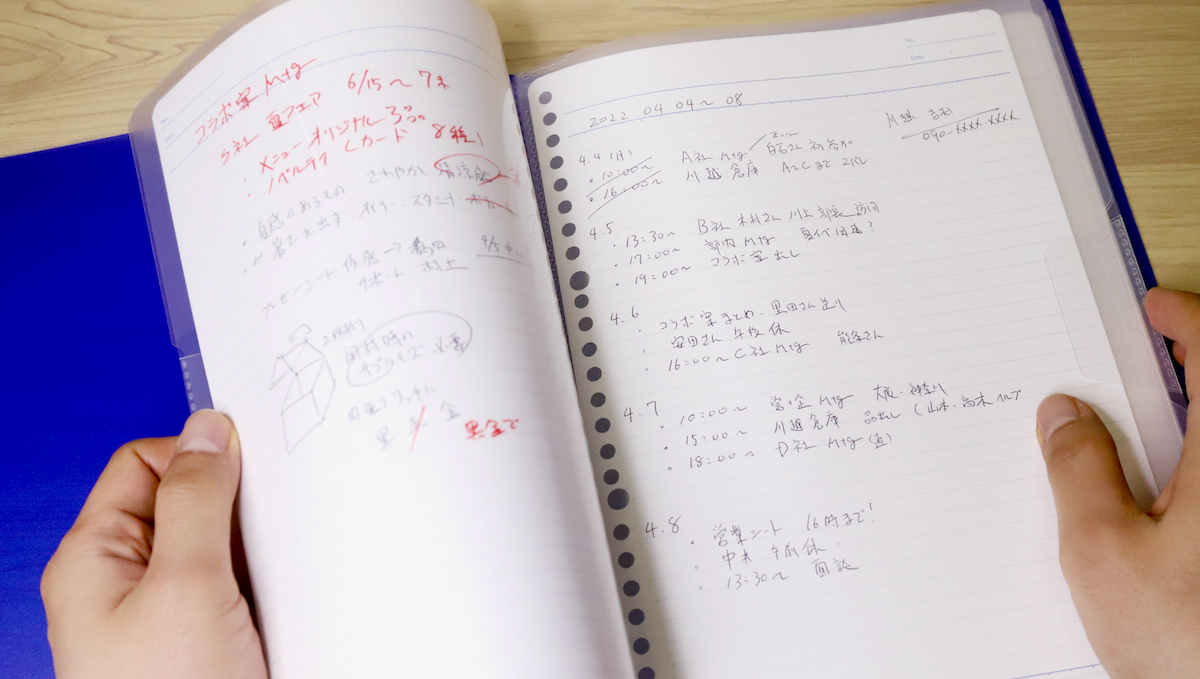 コラボ案 Mtg
S社 夏フェア 6/15〜7末
・メニュー オリジナル3品
・ノベルティ Cカード 8種
・直感のあるもの さわやか、清涼感
・ スタンド
プレゼンシート作成→
サポート 村上
2段折り
開封時の
サプライズ 必要
黒 金 黒金で
No.
Date
2022.04.04〜08
川越 吉村
090-XXXX-XXXX
4.4(月) Zoom
・10:00〜 A社 Mtg 白石さん初参加
・16:00〜 川越倉庫 A〜Cまで
4.5
・13:30〜 B社 木村さん 川上部長 訪問
・17:00〜 部内 Mtg
・19:00〜 コラボ案出し
4.6
・コラボ案まとめ、黒田さん送り
・安田さん 午後休
・16:00〜C社 Mtg 能条さん
4.7
・10:00〜 営+企 Mtg 大阪・神奈川
・15:00〜 川越倉庫 品出し(山本・高木ヘルプ
・18:00〜 D社 Mtg(直)
4.8
・営業シート 16時まで!
・中井 午前休
・13:30〜 面談